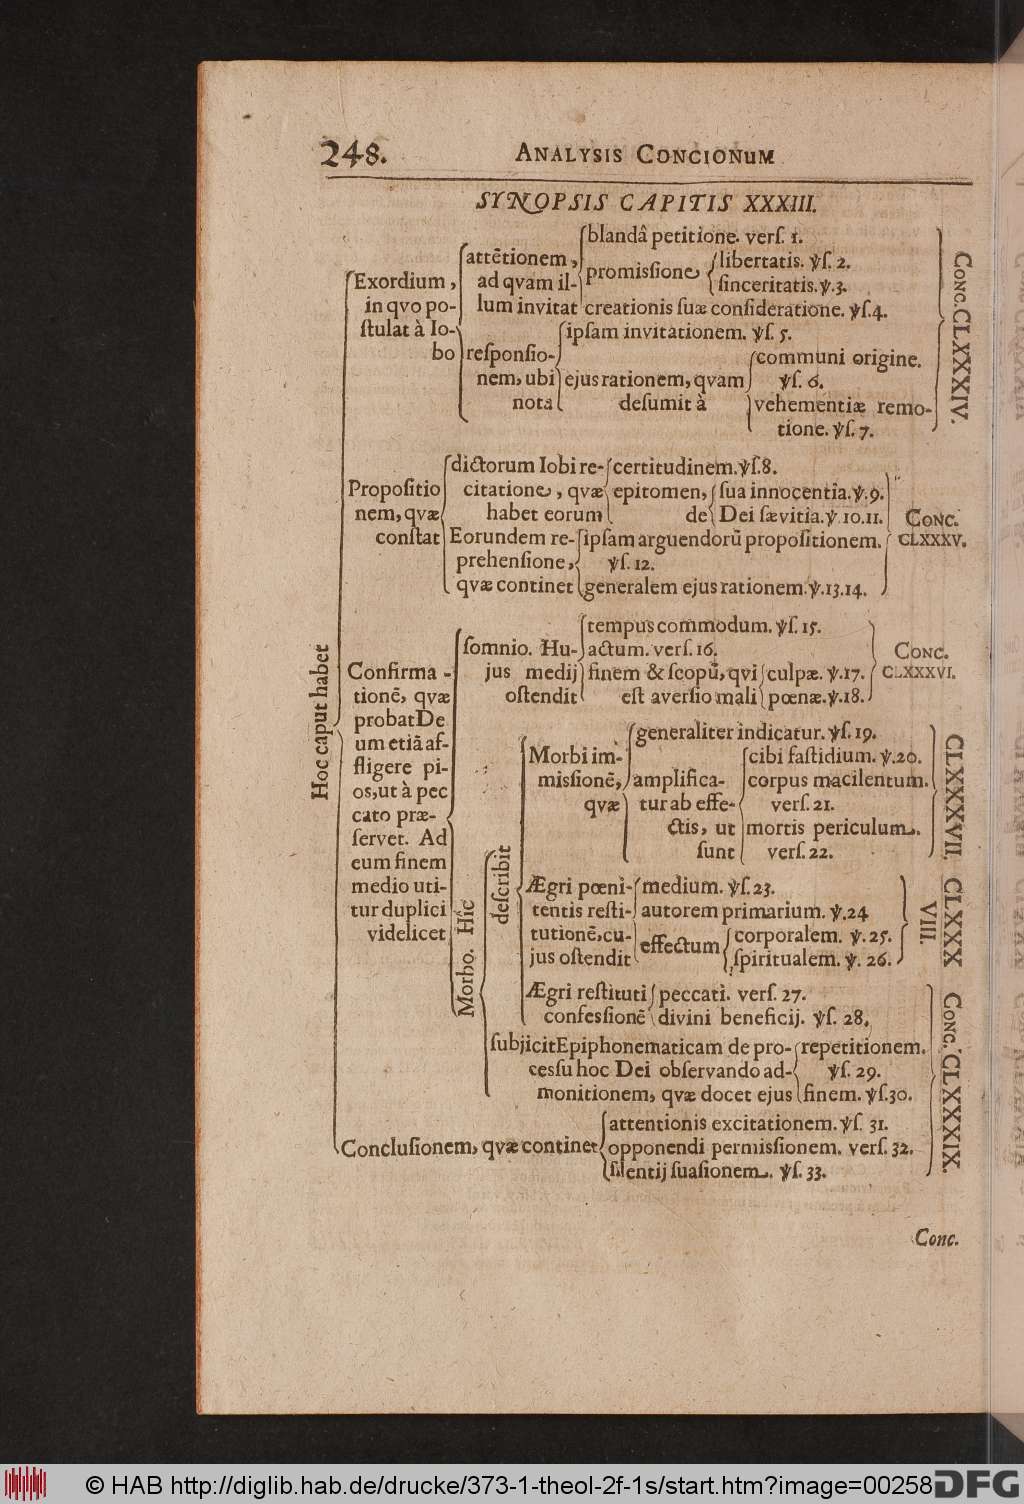 248. ANALYSIS CONCIONUM
SYNOPSIS CAPITIS XXXIII.
Hoc caput habet
Exordium,
in qvo po-
ſtulat à Io-
bo
attētionem,
ad qvam il-
lum invitat
blandâ petitione. verſ. 1.
promiſſione
libertatis. ꝟſ. 2.
ſinceritatis. ꝟ. 3.
creationis ſuæ conſideratione. ꝟſ. 4.
reſponſio-
nem, ubi
nota
ipſam invitationem. ꝟſ. 5.
ejus rationem, qvam
deſumit à
communi origine.
ꝟſ. 6.
vehementiæ remo-
tione. ꝟſ. 7.
CONC. CLXXXIV.
Propoſitio
nem, qvæ
conſtat
dictorum Iobi re-
citatione, qvæ
habet eorum
certitudinem. ꝟſ. 8.
epitomen,
de
ſua innocentia. ꝟ. 9.
Dei ſævitia. ꝟ. 10. 11.
Eorundem re-
prehenſione,
qvæ continet
ipſam arguendorū propoſitionem.
ꝟſ. 12.
generalem ejus rationem. ꝟ. 13. 14.
CONC.
CLXXXV.
Confirma-
tionē, qvæ
probat De
um etiā af-
fligere pi-
os, ut à pec
cato præ-
ſervet. Ad
eum finem
medio uti-
tur duplici
videlicet
ſomnio. Hu-
jus medij
oſtendit
tempus commodum. ꝟſ. 15.
actum. verſ. 16.
finem & ſcopū, qvi
eſt averſio mali
culpæ. ꝟ. 17.
pœnæ. ꝟ. 18.
CONC.
CLXXXVI.
Morbo. Hîc
deſcribit
Morbi im-
miſſionē,
qvæ
generaliter indicatur. ꝟſ. 19.
amplifica-
tur ab effe-
ctis, ut
ſunt
cibi faſtidium. ꝟ. 20.
corpus macilentum.
verſ. 21.
mortis periculum.
verſ. 22.
CLXXXVII.
Ægri pœni-
tentis reſti-
tutionē, cu-
jus oſtendit
medium. ꝟſ. 23.
autorem primarium. ꝟ. 24
effectum
corporalem. ꝟ. 25.
ſpiritualem. ꝟ. 26.
CLXXX
VIII.
Ægri reſtituti
confeſſionē
peccati. verſ. 27.
divini beneficij. ꝟſ. 28.
ſubjicit Epiphonematicam de pro-
ceſſu hoc Dei obſervando ad-
monitionem, qvæ docet ejus
repetitionem.
ꝟſ. 29.
finem. ꝟſ. 30.
Concluſionem, qvæ continet
attentionis excitationem. ꝟſ. 31.
opponendi permiſſionem. verſ. 32.
ſilentij ſuaſionem. ꝟſ. 33.
CONC. CLXXXIX.
Conc.
© HAB http://diglib.hab.de/drucke/373-1-theol-2f-1s/start.htm?image=00258
DFG